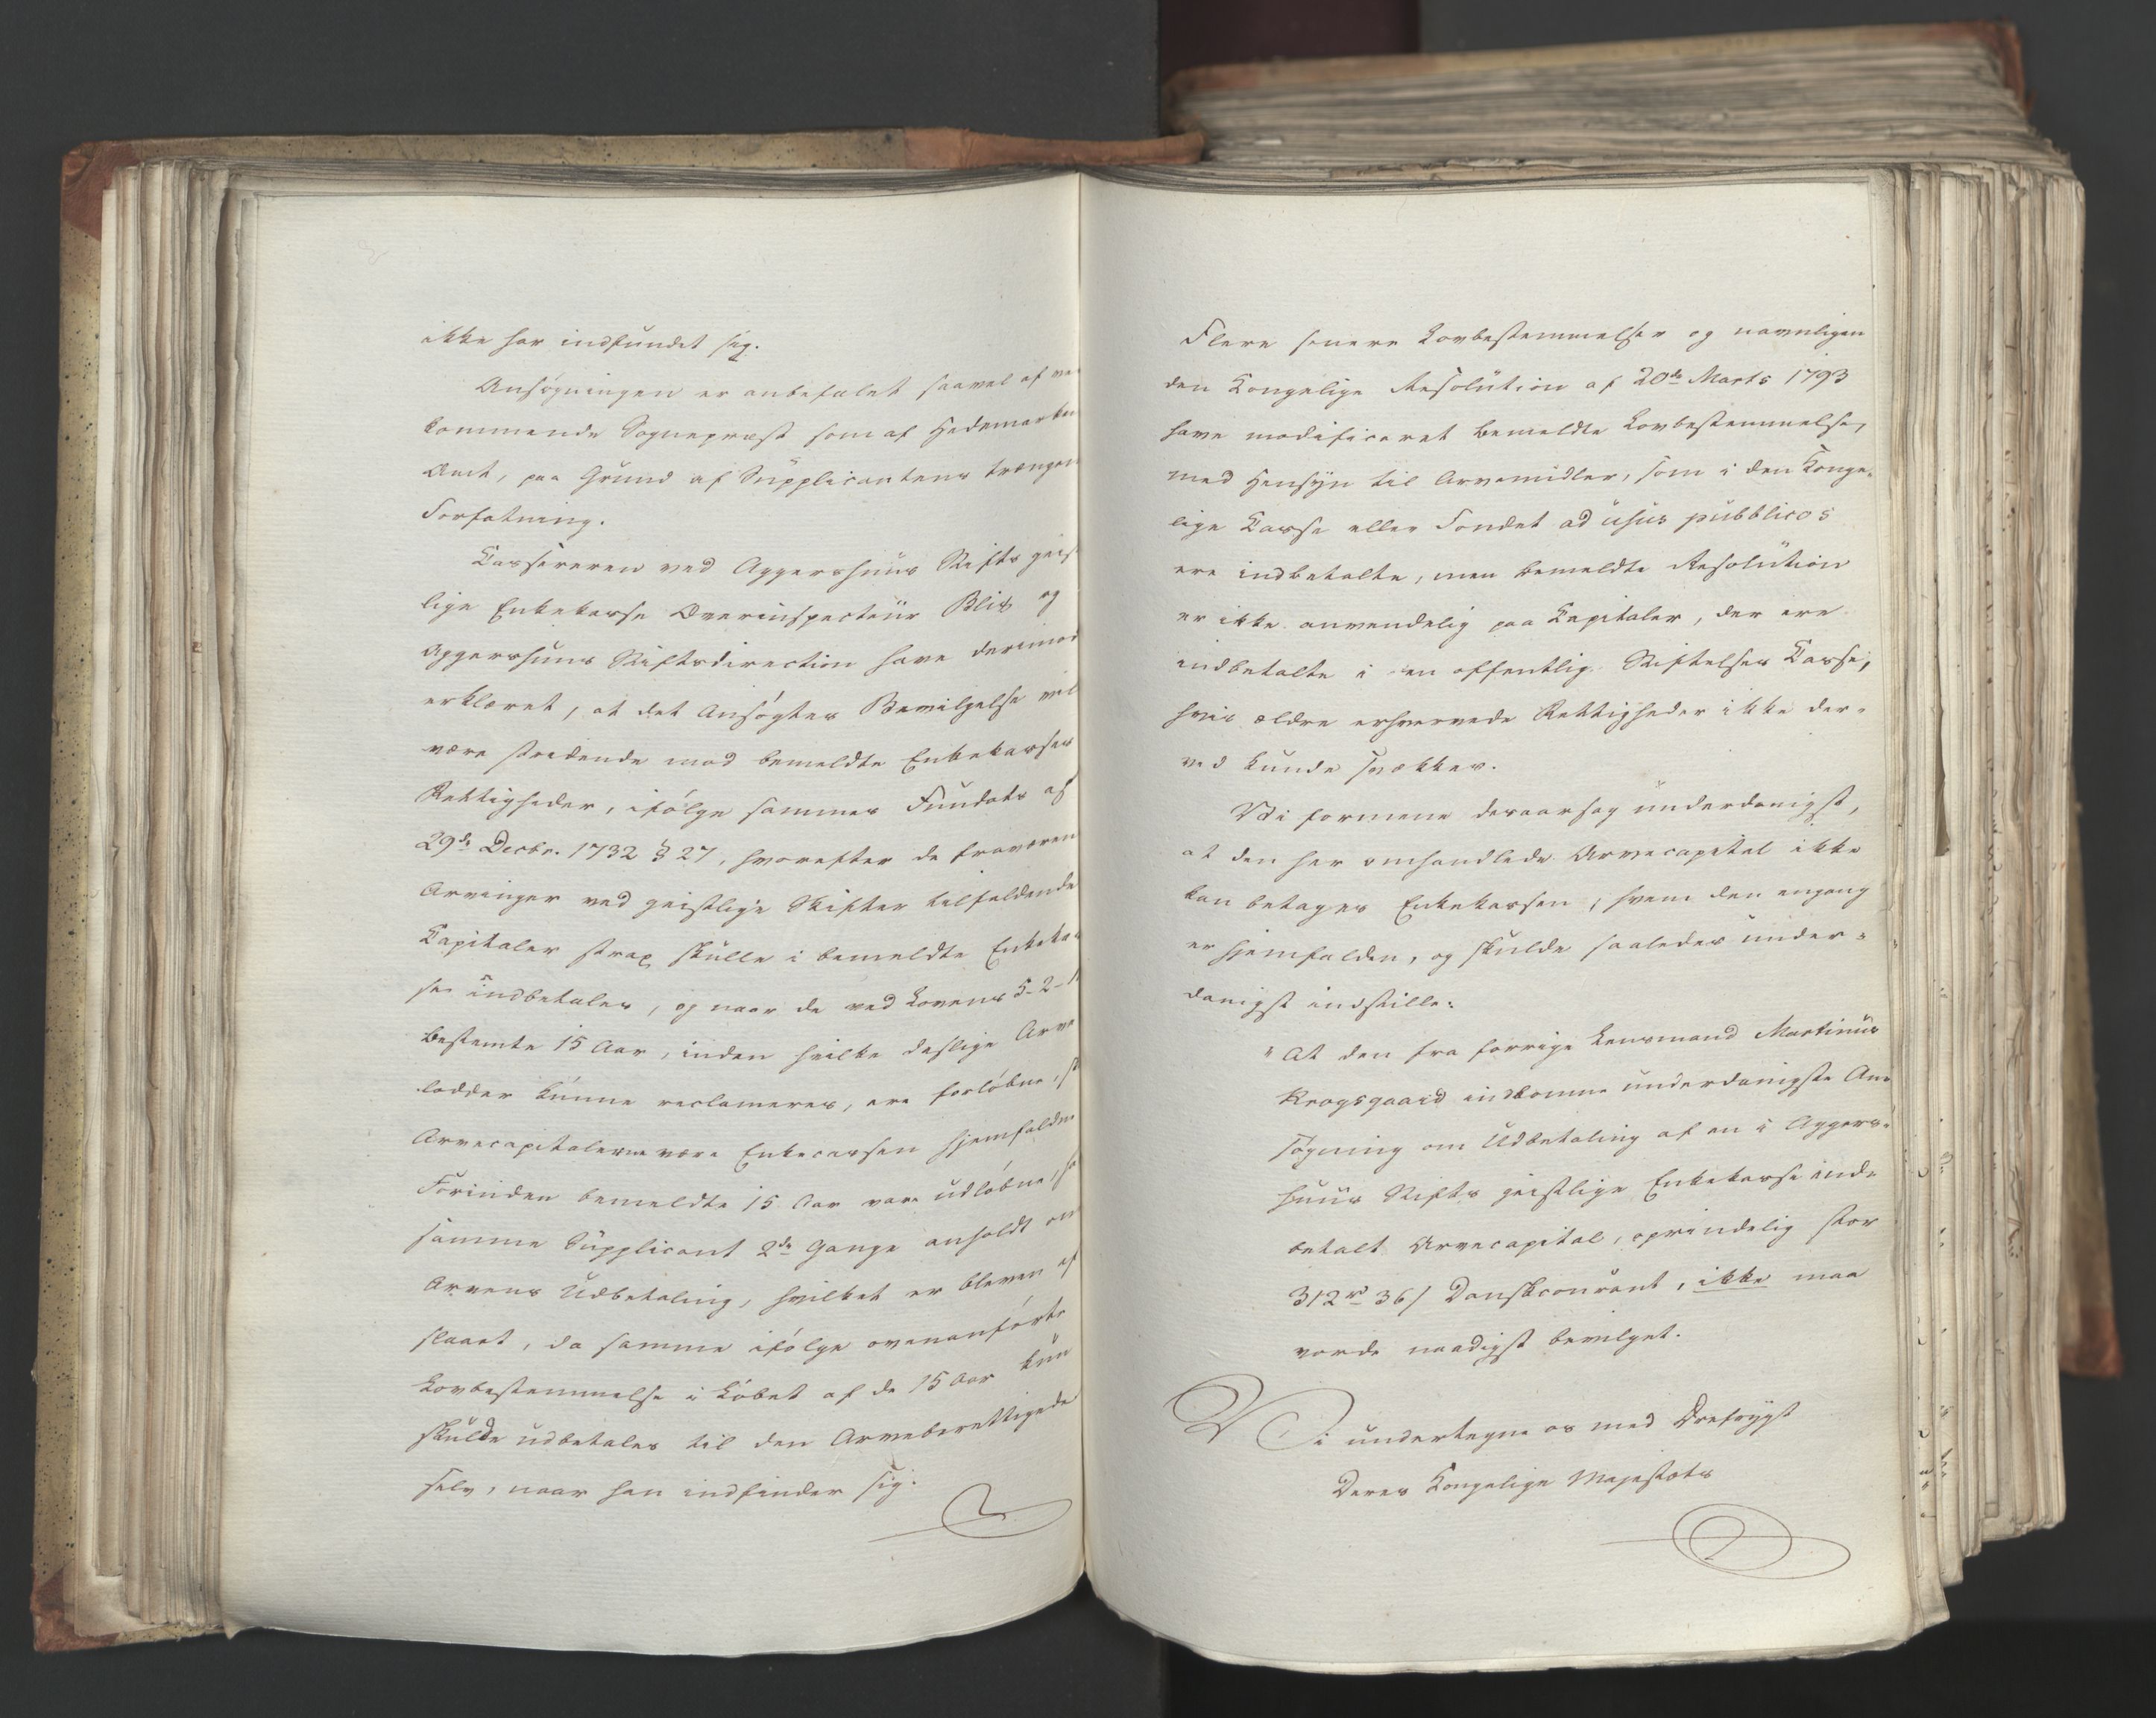 ikke har indfundet sig.
Ansøgningen er anbefalet saavel af ved
kommende Sognepræst som af Hedemarkens
Amt, paa Grund af Supplicantens trængende
Forfatning.
Cassereren ved Aggershuus Stifts geist
lige Enkekasse Overinspecteur Blix og
Aggershuus Stiftsdirection have derimod
erklæret, at det Ansøgtes Bevilgelse vil
være stridende mod bemeldte Enkekasses
Rettigheder, ifølge sammes Fundats af
29de Decbr. 1732 § 27, hvorefter de fraværende
Arvinger ved geistlige Skifter tilfaldende
Capitaler strax skulle i bemeldte Enkekas
se indbetales, og naar de ved Lovens 5-2-
bestemte 15 Aar, inden hvilke deslige Arve
lodder kunne reclameres, ere forløbne,
Arvecapitalerne være Enkecassen hjemfaldne
Forinden bemeldte 15 Aar vare udløbne,
samme Supplicant 2de Gange anholdt om
Arvens Udbetaling, hvilket er bleven af
slaaet, da samme ifølge ovenanførte
Lovbestemmelse i Løbet af de 15 Aar kun
skulde udbetales til den Arveberettigede
selv, naar han indfinder sig.
Flere senere Lovbestemmelser og navnligen
den Kongelige Resolution af 20de Marts 1793
have modificeret bemeldte Lovbestemmelse,
med Hensyn til Arvemidler, som i den Konge-
lige Casse eller Fondet ad usus pubblicos
ere indbetalte, men bemeldte Resolution
er ikke anvendelig paa Capitaler, der ere
indbetalte i en offentlig Stiftelses Casse,
hvis ældre erhvervede Rettigheder ikke der-
ved kunde svækkes.
Vi formene desaarsag underdanigst,
at den her omhandlede Arvecapital ikke
kan betages Enkekassen, hvem den engang
er hjemfalden, og skulde saaledes under-
danigst indstille:
"At den fra forrige Lensmand Martinus
Krogsgaard indkomne underdanigste An-
søgning om Udbetaling af en i Aggers-
huus Stifts geistlige Enkekasse ind-
betalt Arvecapital, oprindelig stor
312rd 36/ Danskcourant, ikke maa
vorde naadigst bevilget.
Vi undertegne os med Ærefrygt
Deres Kongelige Majestæts